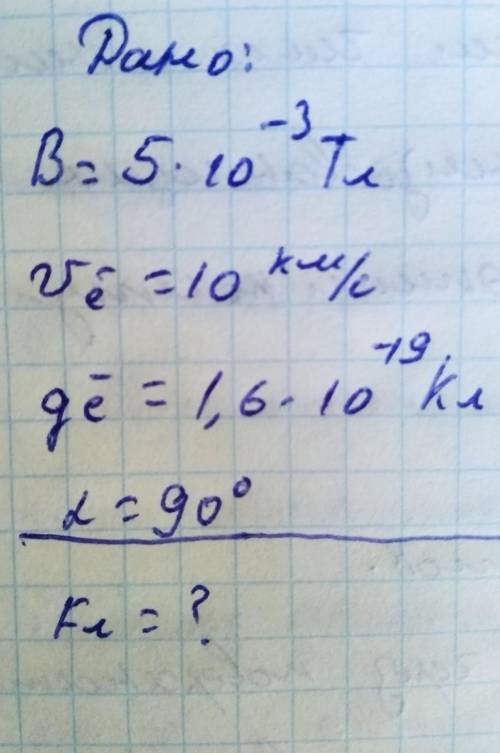 Дано:
B = 5 · 10⁻³ Тл
vē = 10 км/с
qē = 1,6 · 10⁻¹⁹ Кл
α = 90°
Fл = ?